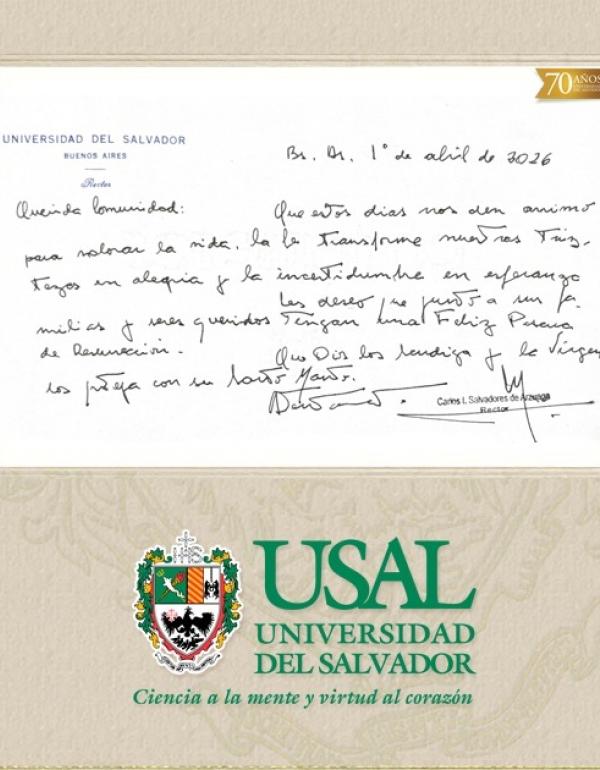 70 AÑOS
UNIVERSIDAD DEL SALVADOR
BUENOS AIRES
Rector
Bs. As. 1º de abril de 2026
Querida Comunidad:
Que estos días nos den animo
para valorar la vida, la fe transforme nuestras tris-
tezas en alegria y la incertidumbre en esperanza
Les deseo que junto a sus fa
milias y seres queridos tengan una Feliz Pascua
de Resurrección.
Que Dios los bendiga y la Virgen
los proteja con su Santo Manto.
Carlos I. Salvadores de Arzuaga
Rector
IHS
USAL
UNIVERSIDAD
DEL SALVADOR
Ciencia a la mente y virtud al corazón